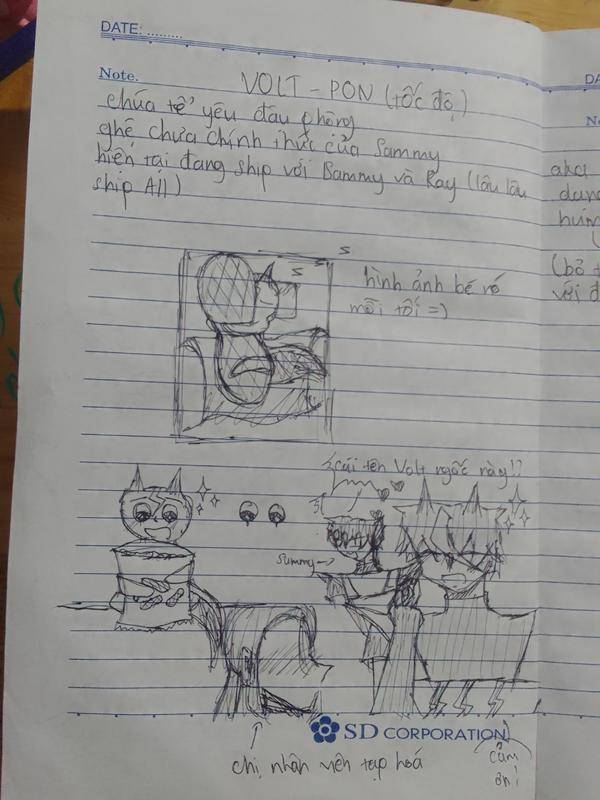 DATE: .........
Note.
VOLT - PON (tốc độ)
chúa tể yêu đâu phộng
ghệ chưa chính thức của Sammy
hiện tại đang ship với Bammy và Ray (lâu lâu
ship All)
S S S
hình ảnh bé nó
mỗi tối =)
cái tên Volt ngốc này!?
Sammy →
SD CORPORATION
chị nhân viên tạp hoá
cảm ơn!
DA
No
aka
(bỏ
với đ